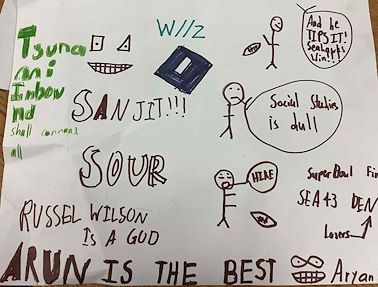 Tsuna
mi
Inbou
nd
shall command
all
W//z
D
And he
TIPS IT!
Seahawks
Win!!
SANJIT!!!
Social Studies
is dull
SOUR
HIKE
Super Bowl Fin
SEA 43 DEN
Losers
RUSSEL WILSON
IS A GOD
ARUN IS THE BEST
Aryan